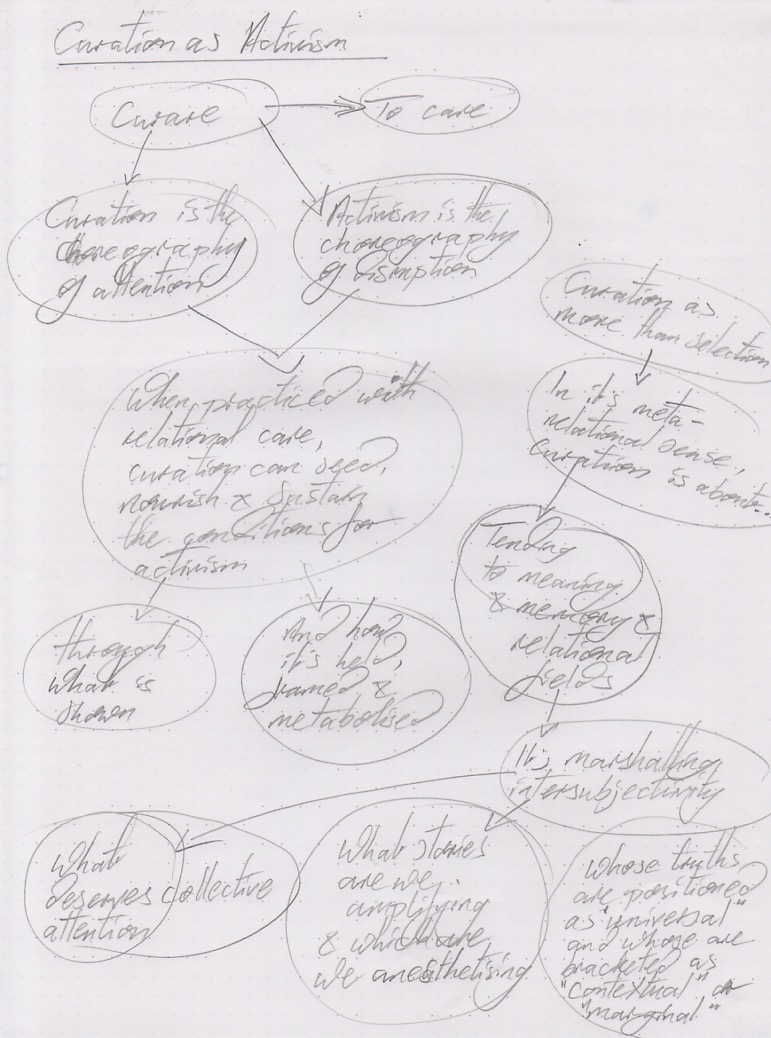 Curation as Activism
Curare
To care
Curation is the
choreography
of attention
Activism is the
choreography
of disruption
When practiced with
relational care,
curation can seed,
nourish & sustain
the conditions for
activism
through
what is
shown
And how
it's held,
framed &
metabolised
Curation as
more than selection
In it's meta-
relational sense,
curation is about...
Tending
to meaning
& memory &
relational
fields
It's marshalling
intersubjectivity
What
deserves collective
attention
What stories
are we
amplifying
& which are
we anesthetising
Whose truths
are positioned
as "universal"
and whose are
bracketed as
"contextual" or
"marginal"